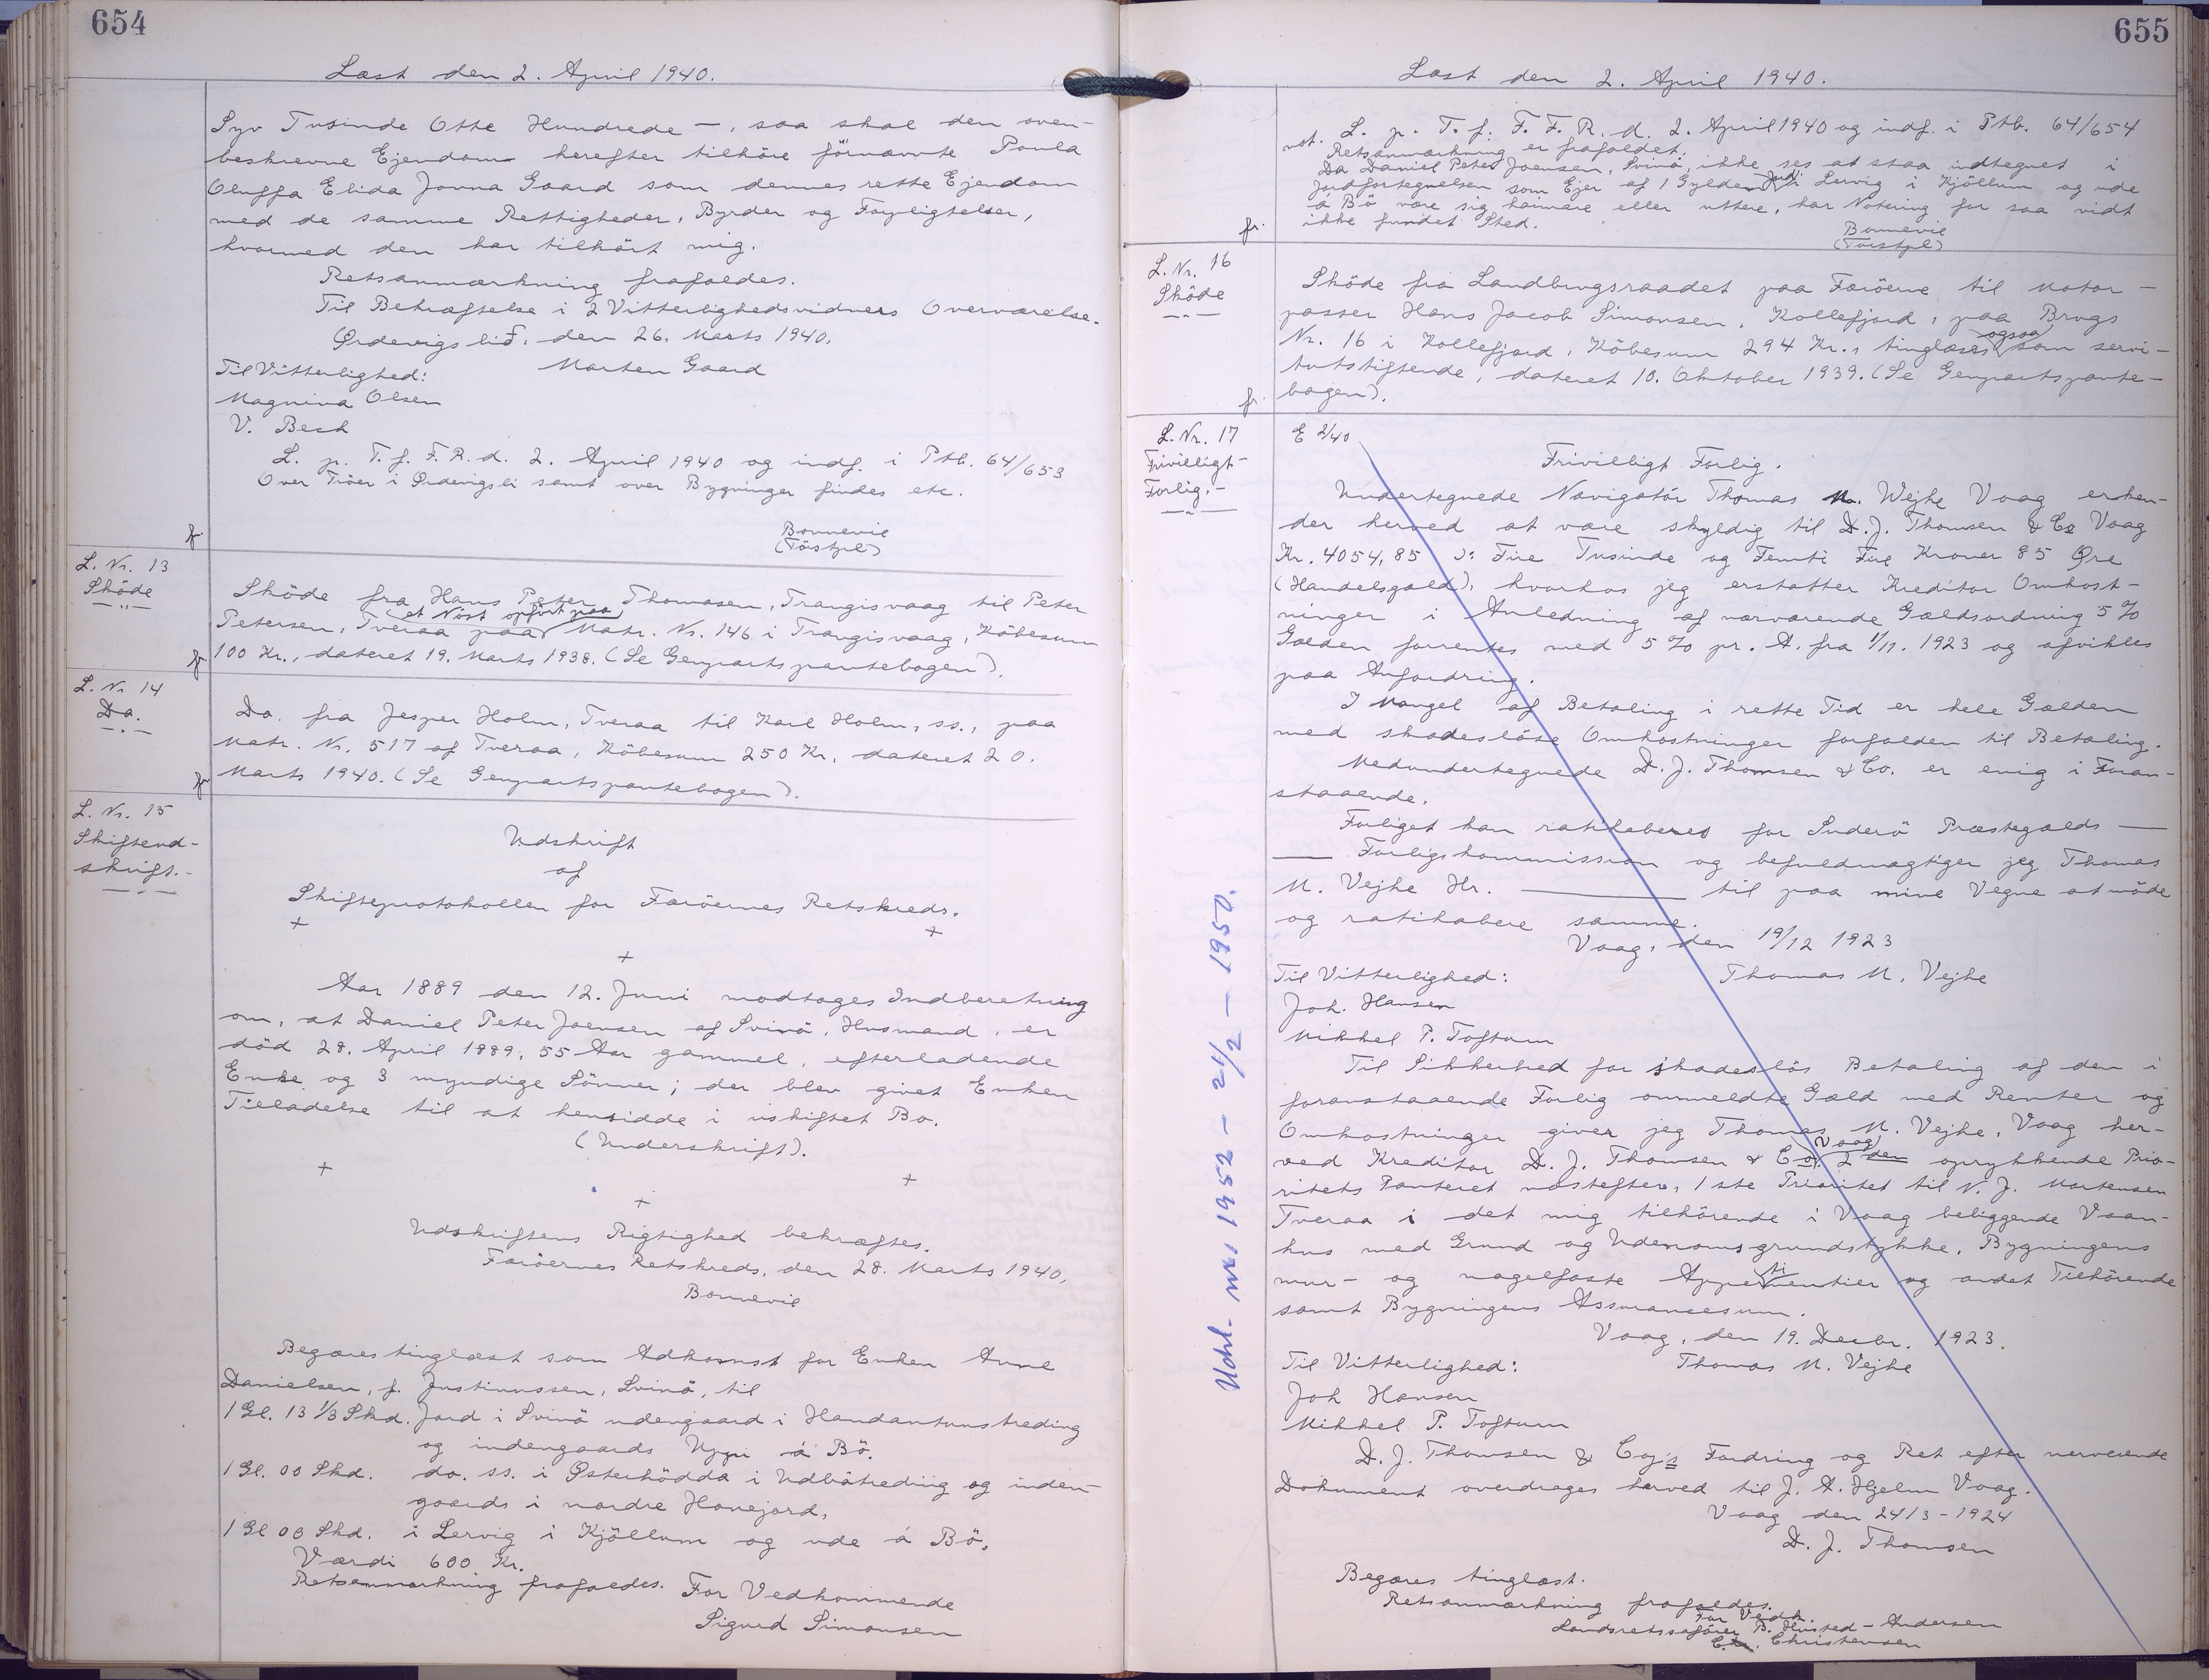 654
Læst den 2. April 1940.
Syv Tusinde Otte Hundrede —, saa skal den oven-
beskrevne Ejendom herefter tilhöre förnævnte Paula
Oluffa Elida Jonna Gaard som dennes rette Ejendom
med de samme Rettigheder, Byrder og Forpligtelser,
hvormed den har tilhört mig.
Retsanmærkning frafaldes.
Til Bekræftelse i 2 Vitterlighedsvidners Overværelse.
Ørdevigslid, den 26. Marts 1940.
Til Vitterlighed: Morten Gaard
Magnina Olsen
V. Bech
L. p. T. f. F. R. d. 2. April 1940 og indf. i Ptb. 64/653
Over Tröer i Ørdevigsli samt over Bygninger findes etc.
Bonnevie
fr.
L. Nr. 13
Sköde
Sköde fra Hans Peter Thomasen, Trangisvaag til Peter
Petersen, Tveraa paa et Nöst opfört paa Matr. Nr. 146 i Trangisvaag, Köbesum
100 Kr., dateret 19. Marts 1938. (Se Genpartspantebogen).
fr.
L. Nr 14
Do.
Do. fra Jesper Holm, Tveraa til Karl Holm, ss., paa
Matr. Nr. 517 af Tveraa, Köbesum 250 Kr., dateret 20.
Marts 1940. (Se Genpartspantebogen).
fr.
L. Nr. 15
Skifteud-
skrift.-
Udskrift
af
Skifteprotokollen for Færöernes Retskreds.
+ + +
Aar 1889 den 12. Juni modtages Indberetning
om, at Daniel Peter Joensen af Svinö, Husmand, er
död 28. April 1889, 55 Aar gammel, efterladende
Enke og 3 myndige Sönner; der blev givet Enken
Tilladelse til at hensidde i uskiftet Bo.
(Underskrift).
+ + +
Udskriftens Rigtighed bekræftes.
Færöernes Retskreds, den 28. Marts 1940.
Bonnevie
Begæres tinglæst som Adkomst for Enken Anne
Danielsen, f. Justinussen, Svinö, til
1 Gl. 13 1/3 Skd. Jord i Svinö udengaard i Handantunstreding
og indengaards Uppi á Bö.
1 Gl. 00 Skd. do. ss. i Østerhödda i Udbötreding og inden-
gaards i nordre Hanejord,
1 Gl 00 Skd. i Lervig i Kjöllum og ude á Bö,
Værdi 600 Kr.
Retsanmærkning frafaldes. For Vedkommende
Sigurd Simonsen
655
Læst den 2. April 1940.
L. p. T. f. F. F. R. d. 2. April 1940 og indf. i Ptb. 64/654
not. Retsanmærkning er frafaldet.
Da Daniel Peter Joensen, Svinö, ikke ses at staa indtegnet i
Jordfortegnelsen som Ejer af 1 Gylden Jord i Lervig i Kjöllum og ude
á Bö være sig haimare eller uttere, har Notering for saa vidt
ikke fundet Sted.
Bonnevie
fr.
L. Nr. 16
Sköde
Sköde fra Landbrugsraadet paa Færöerne til Motor-
passer Hans Jacob Simonsen, Kollefjord, paa Brugs
Nr. 16 i Kollefjord, Köbesum 294 Kr., tinglæses ogsaa som servi-
tutstiftende, dateret 10. Oktober 1939. (Se Genpartspante-
bogen).
fr.
L. Nr. 17
Frivilligt-
Forlig.-
E 2/40
Frivilligt Forlig.
Undertegnede Navigatör Thomas M. Wejhe Vaag erken-
der herved at være skyldig til D. J. Thomsen & Co Vaag
Kr. 4054,85 ɔ: Fire Tusinde og Femti Fire Kroner 85 Øre
(Handelsgæld), hvorhos jeg erstatter Kreditor Omkost-
ninger i Anledning af nærværende Gældsordning 5 %
Gælden forrentes med 5 % pr. A. fra 1/11. 1923 og afvikles
paa Anfordring.
I Mangel af Betaling i rette Tid er hele Gælden
med skadeslöse Omkostninger forfalden til Betaling.
Medundertegnede D. J. Thomsen & Co. er enig i Foran-
staaende.
Forliget kan ratihaberes for Suderö Præstegælds —
— Forligskommission og befuldmægtiger jeg Thomas
M. Vejhe Hr. ——— til paa mine Vegne at möde
og ratihabere samme.
Vaag, den 19/12 1923
Til Vitterlighed: Thomas M. Vejhe
Joh. Hansen
Mikkel P. Toftum
Til Sikkerhed for skadeslös Betaling af den i
foranstaaende Forlig ommeldte Gæld med Renter og
Omkostninger giver jeg Thomas M. Vejhe, Vaag her-
ved Kreditor D. J. Thomsen & Co, Vaag 2den oprykkende Prio-
ritets Panteret næstefter, 1ste Prioritet til N. J. Mortensen
Tveraa i det mig tilhörende i Vaag beliggende Vaan-
hus med Grund og Udenomsgrundstykke, Bygningens
mur- og nagelfaste Appertinentier og andet Tilhörende
samt Bygningens Assurancesum.
Vaag, den 19. Decbr. 1923.
Til Vitterlighed: Thomas M. Vejhe
Joh Hansen
Mikkel P. Toftum
D. J. Thomsen & Coj's Fordring og Ret efter nærværende
Dokument overdrages herved til J. A. Hjelm Vaag.
Vaag den 24/3 - 1924
D. J. Thomsen
Begæres tinglæst.
Retsanmærkning frafaldes.
For Vedk.
Landsretssagförer B. Husted-Andersen
Christensen
Udsl. nr. 1952 - 21/2 - 1950.